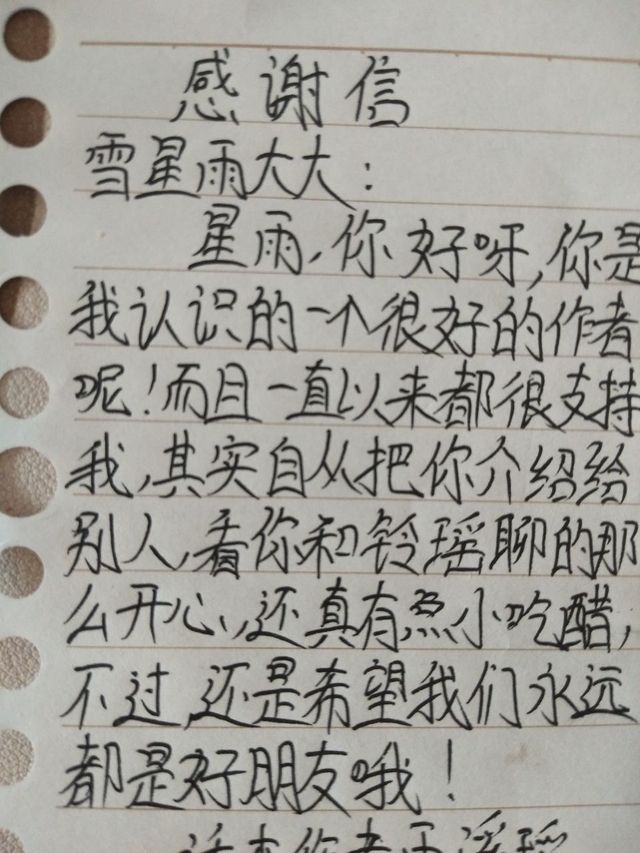 感谢信
雪星雨大大:
星雨,你好呀,你是
我认识的一个很好的作者
呢!而且一直以来都很支持
我,其实自从把你介绍给
别人,看你和铃瑶聊的那
么开心,还真有点小吃醋,
不过,还是希望我们永远
都是好朋友哦!